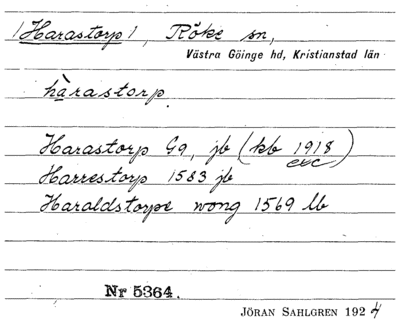 /Harastorp/, Röke sn,
Västra Göinge hd, Kristianstad län
hàrastorp.
Harastorp Gg, jb (kb 1918 etc)
Harrestorp 1583 jb
Haraldstorps wong 1569 lb
Nr 5364.
JÖRAN SAHLGREN 1924